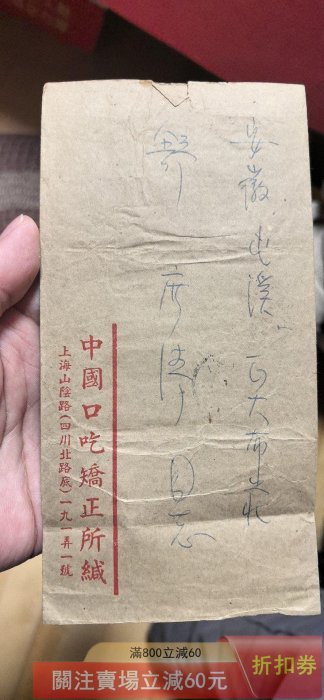 安徽屯溪
同志
中國口吃矯正所緘
上海山陰路(四川北路底)一九一弄一號
滿800立減60
關注賣場立減60元
折扣券